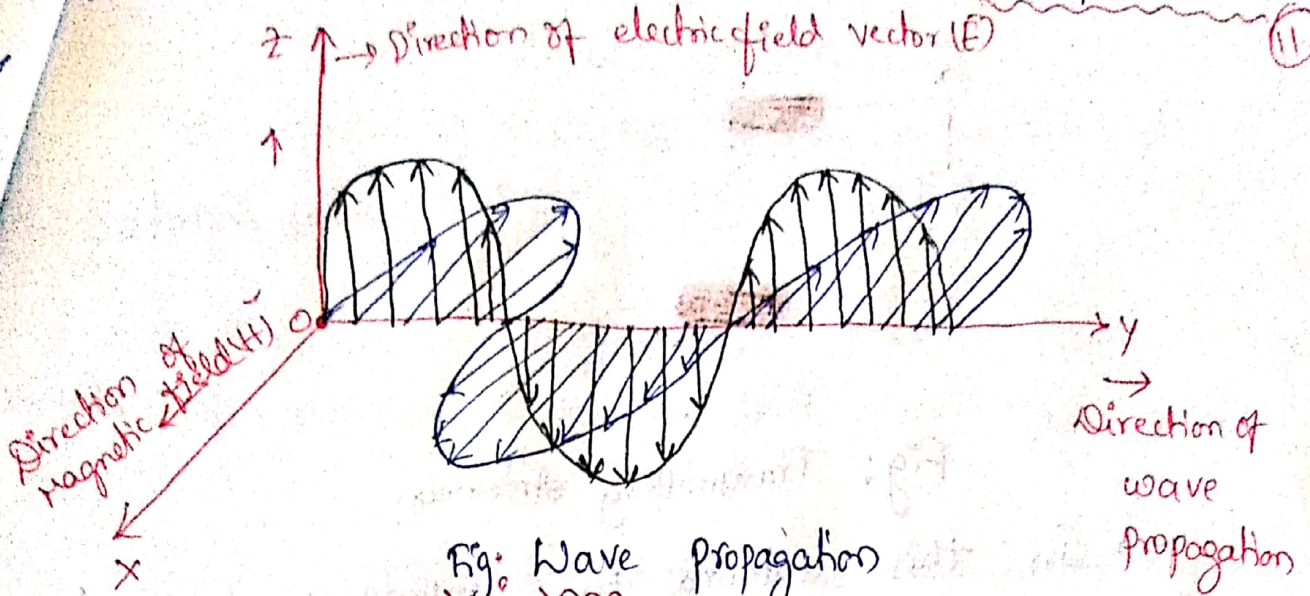 Z → Direction of electric field vector (E)
11
↑
O
Direction of
magnetic field (H)
Y
→
Direction of
wave
propagation
X
Fig: Wave propagation